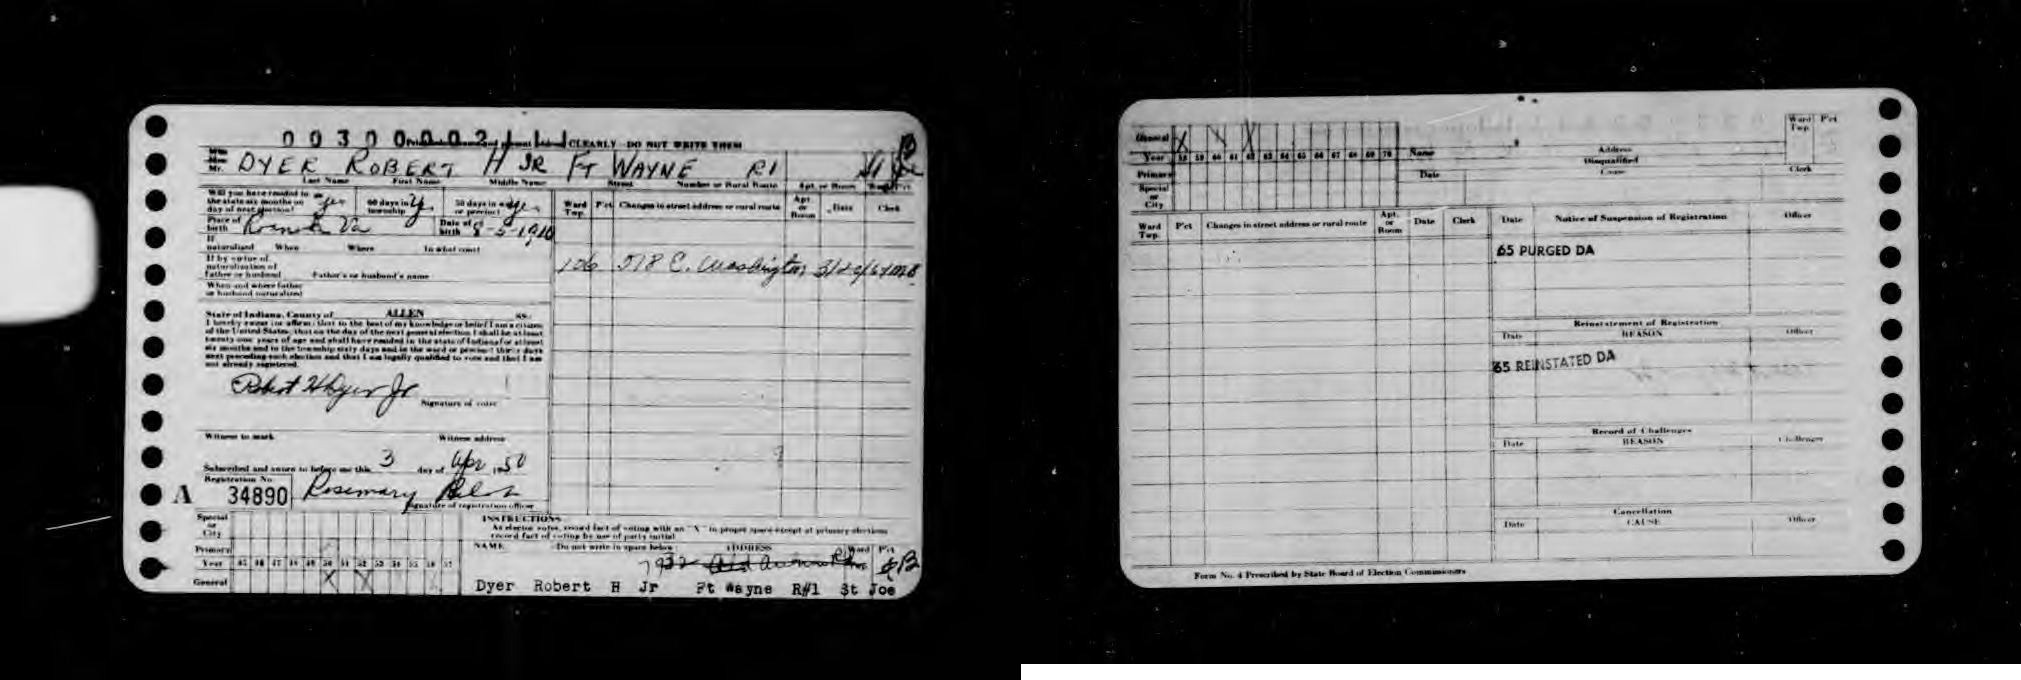 CLEARLY - DO NOT WRITE THEM
Mr. DYER ROBERT H JR FT WAYNE R1
Last Name First Name Middle Name Street Number or Rural Route Apt. or Room
Will you have resided in the state six months on day of next election? yes 60 days in township 30 days in ward or precinct
Ward Twp. P'ct Changes in street address or rural route Apt. or Room Date Clerk
Place of birth Va Date of birth 8-5-1910
If naturalized When Where In what court
If by virtue of naturalization of Father or husband Father's or husband's name
106 518 E. Washington
When and where father or husband naturalized
State of Indiana, County of ALLEN ss:
I hereby swear (or affirm) that to the best of my knowledge or belief I am a citizen
of the United States, that on the day of the next general election I shall be at least
twenty one years of age and shall have resided in the state of Indiana for at least
six months and in the township sixty days and in the ward or precinct thirty days
next preceding such election and that I am legally qualified to vote and that I am
not already registered.
Robert H Dyer Jr
Signature of voter
Witness to mark Witness address
Subscribed and sworn to before me this 3 day of Apr 1950
Registration No.
A 34890 Rosemary
Signature of registration officer
INSTRUCTIONS
As elector votes, record fact of voting with an "X" in proper space except at primary elections
record fact of voting by use of party initial
Special or City
Primary
Year 45 46 47 48 49 50 51 52 53 54 55 56 57
General
NAME Do not write in space below ADDRESS Ward P'ct
7932
Dyer Robert H Jr Ft Wayne R#1 St Joe
General
Year 58 59 60 61 62 63 64 65 66 67 68 69 70
Primary
Special or City
Name Address Ward Twp. P'ct
Disqualified
Date Cause Clerk
Ward Twp. P'ct Changes in street address or rural route Apt. or Room Date Clerk
Date Notice of Suspension of Registration Officer
65 PURGED DA
Reinstatement of Registration
Date REASON Officer
65 REINSTATED DA
Record of Challenges
Date REASON Challenger
Cancellation
Date CAUSE Officer
Form No. 4 Prescribed by State Board of Election Commissioners